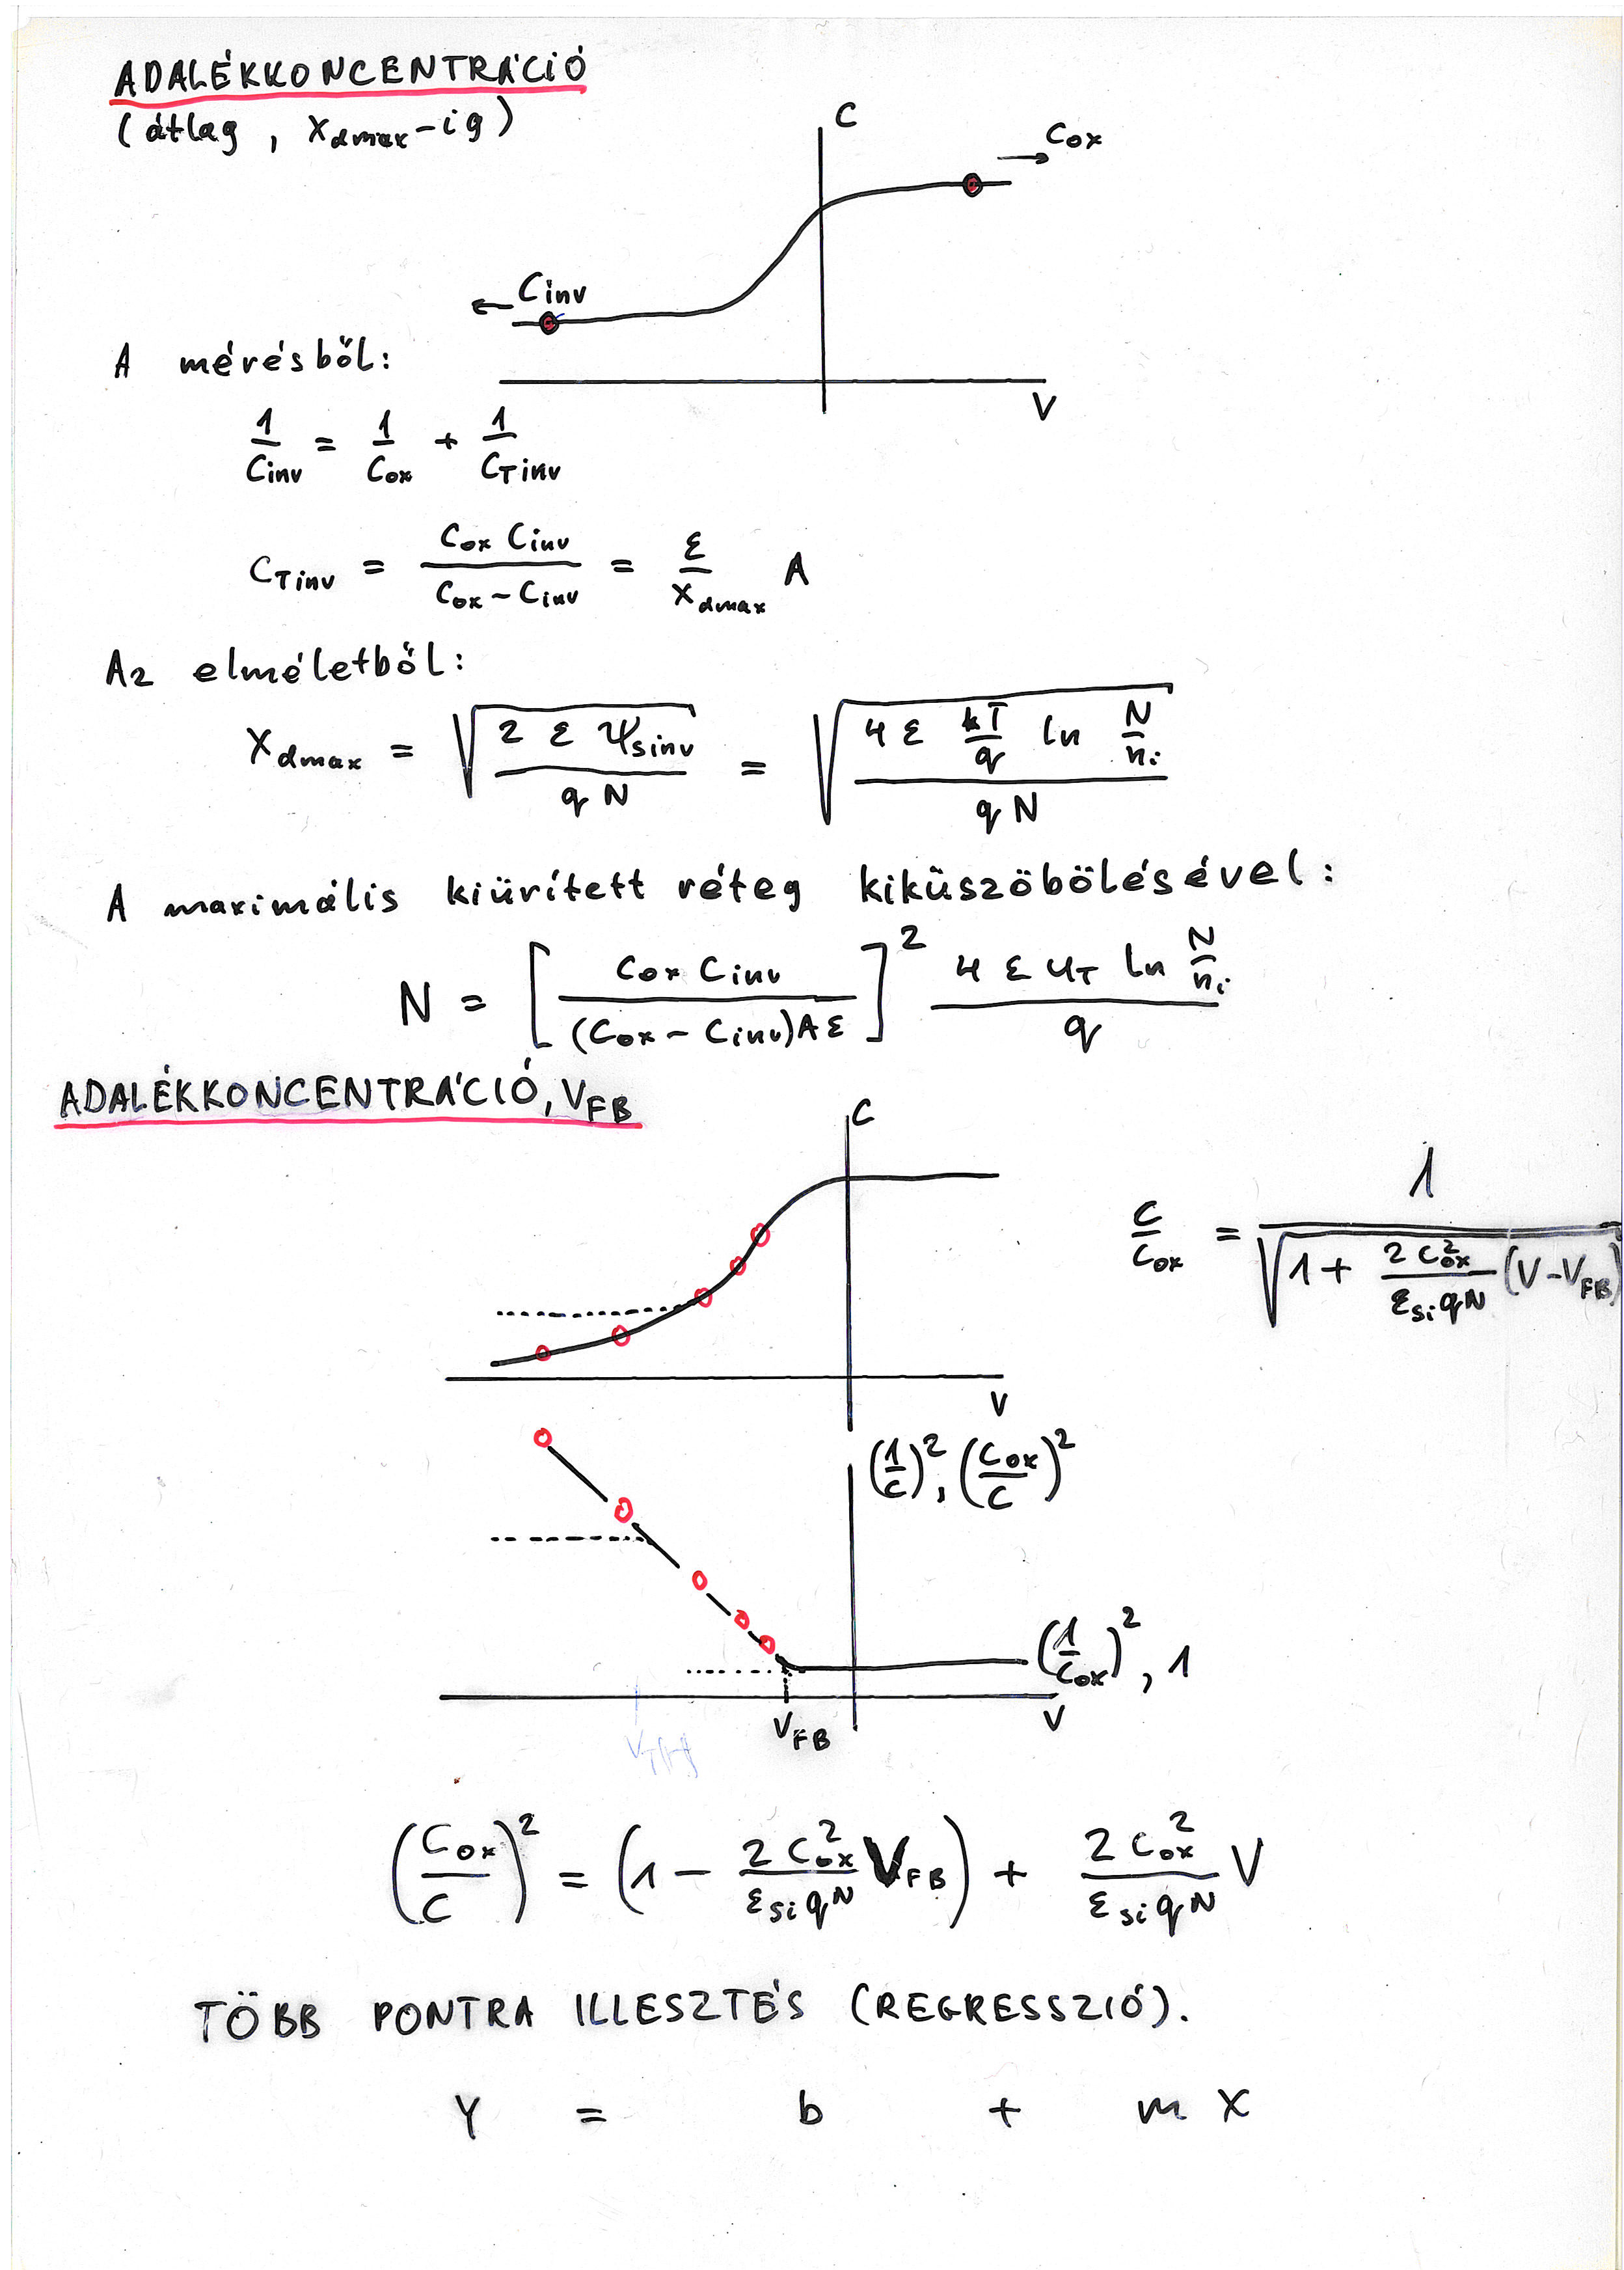 ADALÉKKONCENTRÁCIÓ
(átlag, X_dmax-ig)
C
→ Cox
← Cinv
V
A mérésből:
1/Cinv = 1/Cox + 1/CTinv
CTinv = Cox Cinv / (Cox - Cinv) = ε/Xdmax A
Az elméletből:
Xdmax = √(2 ε Ψsinv / qN) = √(4 ε kT/q ln N/ni / qN)
A maximális kiürített réteg kiküszöbölésével:
N = [Cox Cinv / (Cox - Cinv)Aε]² 4 ε UT ln N/ni / q
ADALÉKKONCENTRÁCIÓ, VFB
C
C/Cox = 1/√(1 + 2Cox²/εSi qN (V-VFB)
V
(1/C)², (Cox/C)²
(1/Cox)², 1
VFB
V
(Cox/C)² = (1 - 2Cox²/εSi qN VFB) + 2Cox²/εSi qN V
TÖBB PONTRA ILLESZTÉS (REGRESSZIÓ).
Y = b + m X